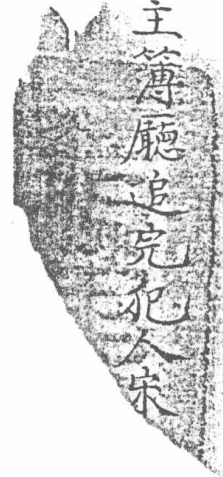 主簿廳追完犯人宋